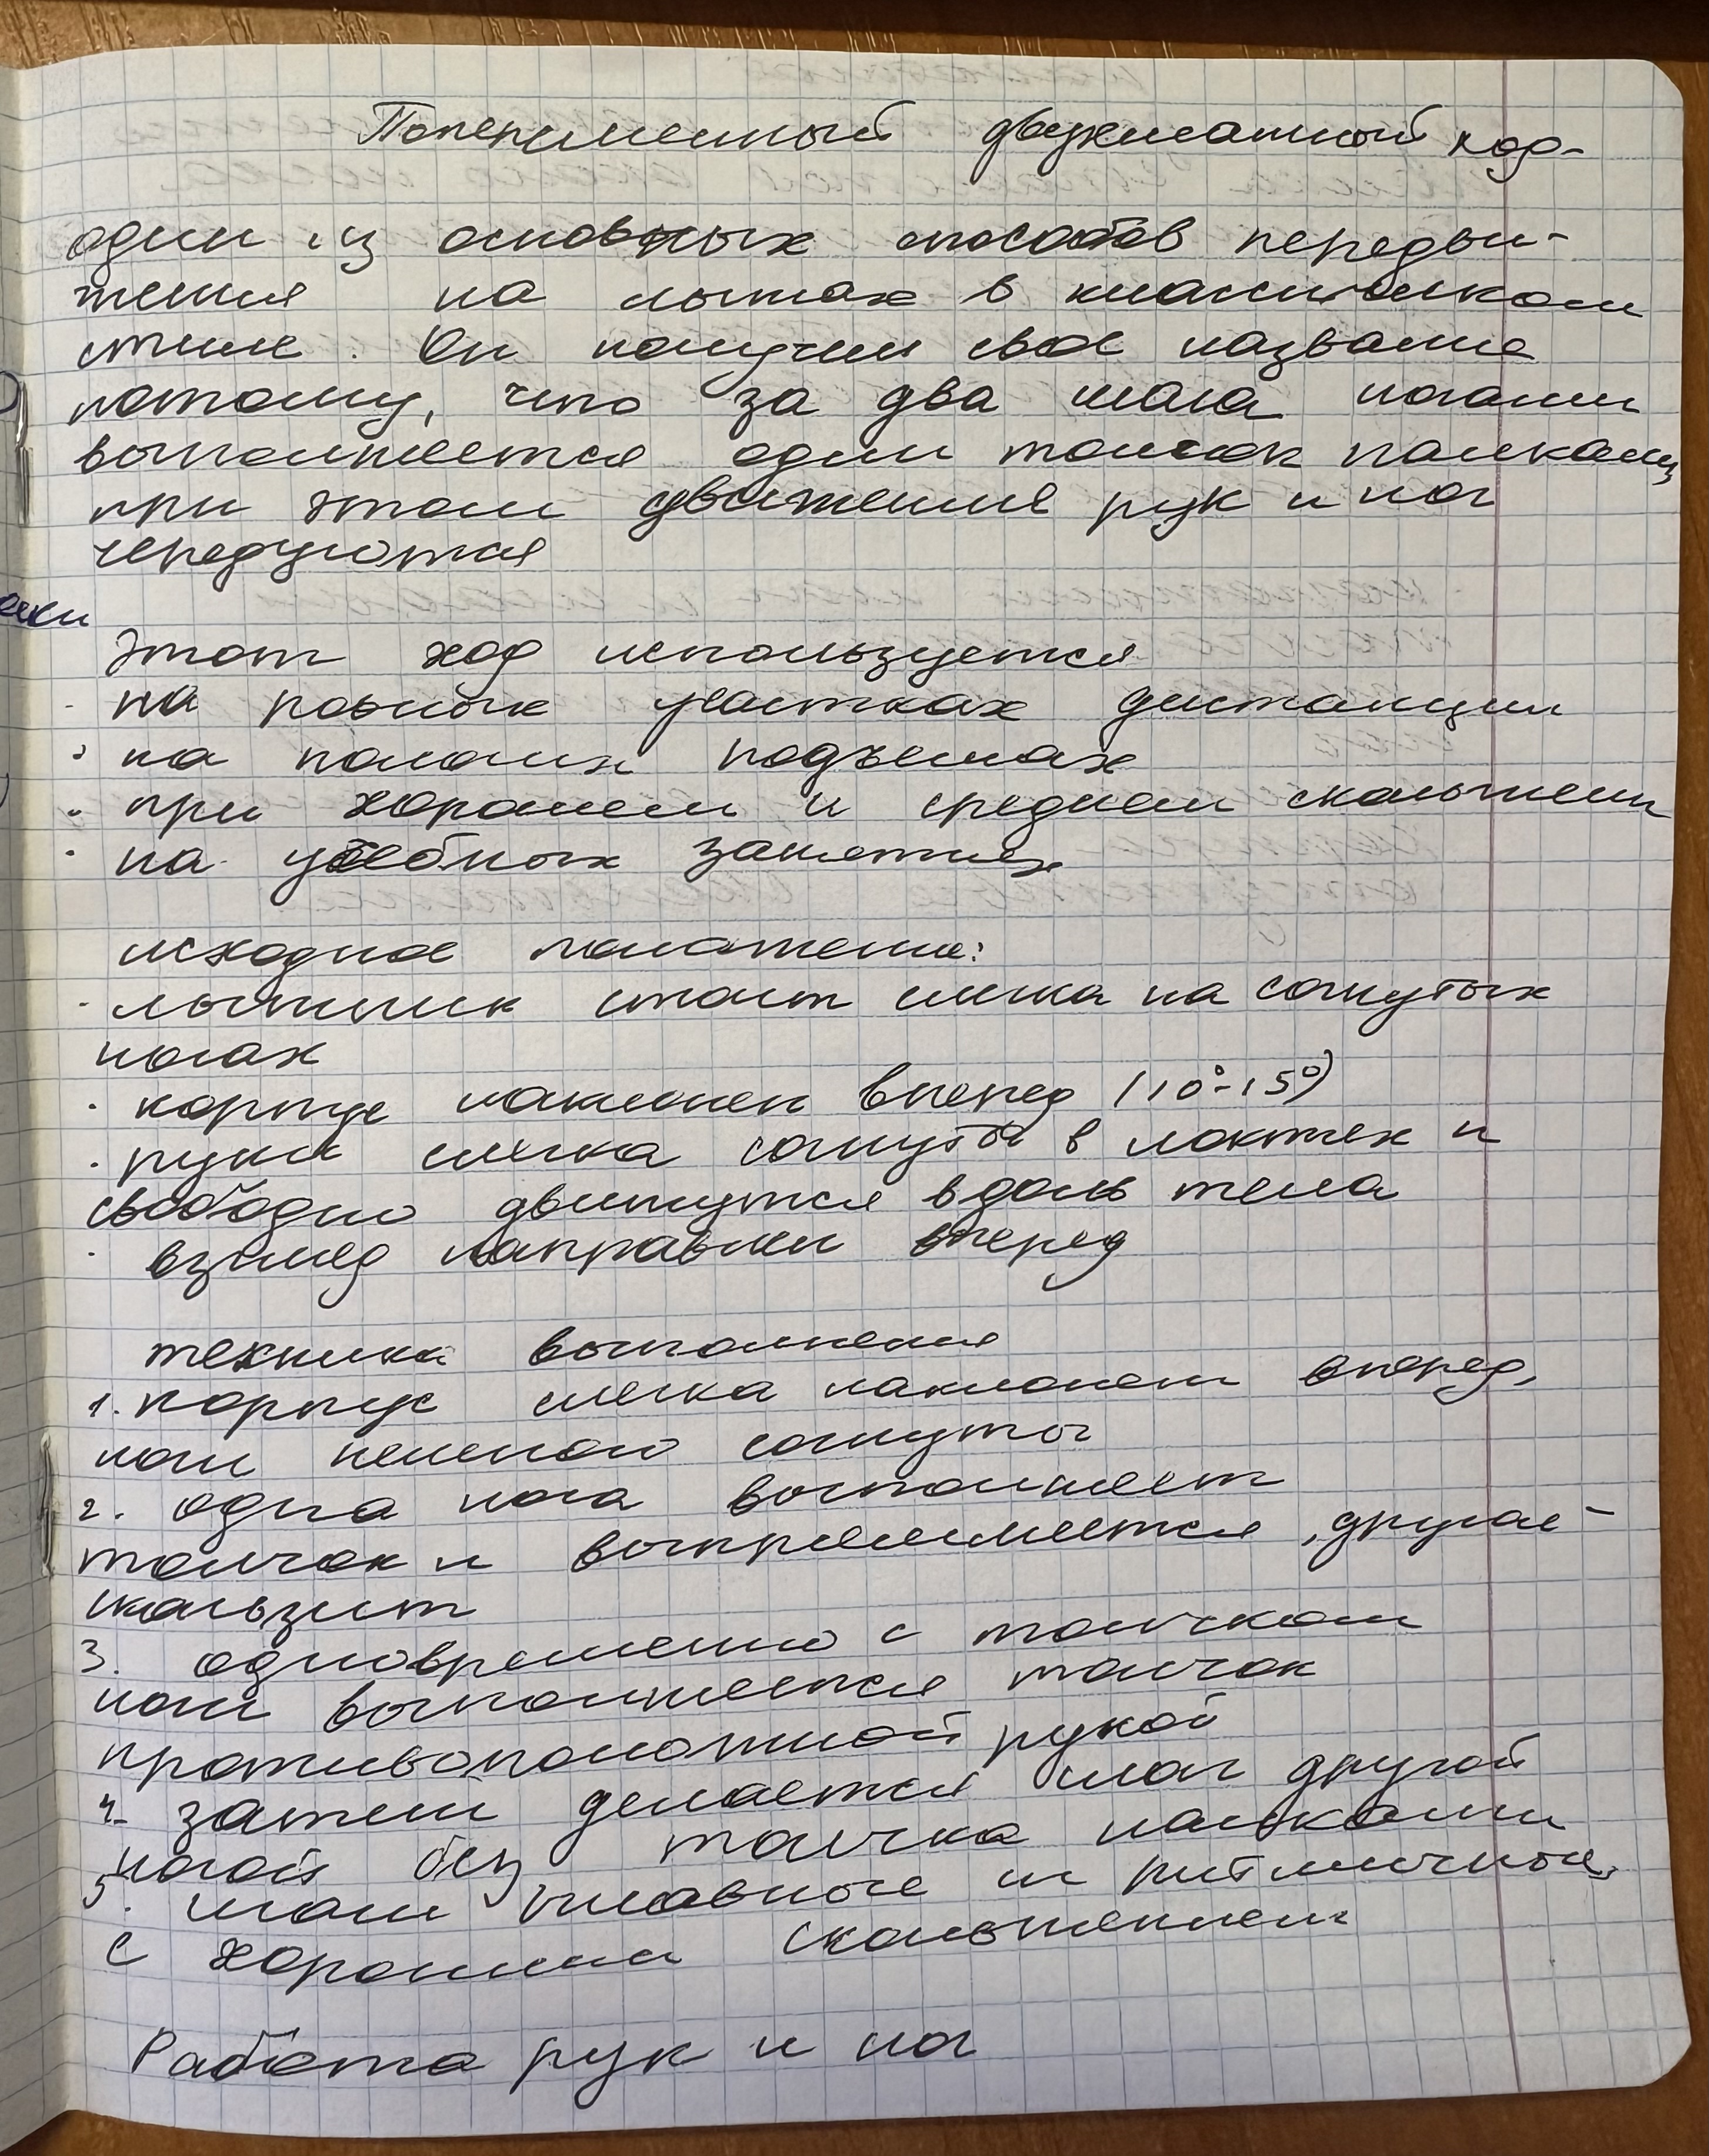 Попеременный двухшажный ход-
один из основных способов передви-
жения на лыжах в классическом
стиле. Он получил своё название
потому, что за два шага ногами
выполняется один толчок палками,
при этом движения рук и ног
чередуются
Этот ход используется
- на ровных участках дистанции
- на пологих подъемах
- при хорошем и среднем скольжении
- на учебных занятиях
исходное положение:
- лыжник стоит слегка на согнутых
ногах
- корпус наклонен вперед (10°-15°)
- руки слегка согнуты в локтях и
свободно движутся вдоль тела
- взгляд направлен вперед
техника выполнения
1. корпус слегка наклонен вперед,
ноги немного согнуты
2. одна нога выполняет
толчок и выпрямляется, другая -
скользит
3. одновременно с толчком
ноги выполняется толчок
противоположной рукой
4. затем делается шаг другой
ногой без толчка палками
5. шаги плавные и ритмичные,
с хорошим скольжением
Работа рук и ног